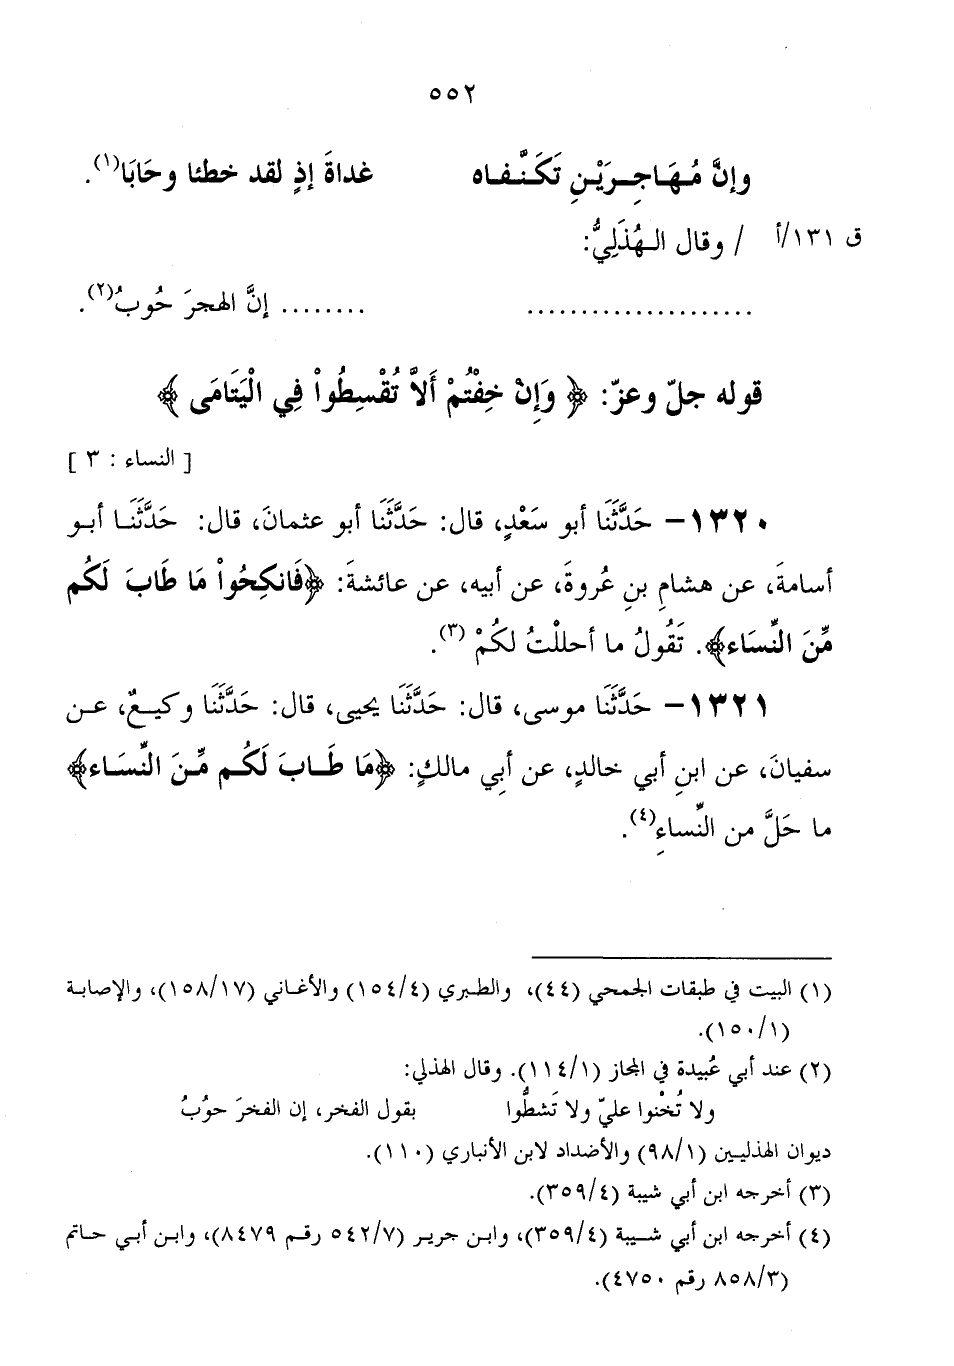 ٥٥٢
وإنَّ مُهَاجِرَيْنِ تَكَنَّفَاه غداةَ إذٍ لقد خطئا وحَابَا(١).
ق ١٣١/أ / وقال الهُذَلِيُّ:
..................... ........ إنَّ الهجرَ حُوبُ(٢).
قوله جلّ وعزّ: ﴿ وَإِنْ خِفْتُمْ أَلاَّ تُقْسِطُواْ فِي الْيَتَامَى ﴾
[ النساء : ٣ ]
١٣٢٠- حَدَّثَنَا أبو سَعْدٍ، قال: حَدَّثَنَا أبو عثمانَ، قال: حَدَّثَنَا أبو
أسامةَ، عن هشامِ بنِ عُروةَ، عن أبيه، عن عائشةَ: ﴿فَانكِحُواْ مَا طَابَ لَكُم
مِّنَ النِّسَاء﴾. تَقُولُ ما أحللْتُ لكُمْ (٣).
١٣٢١- حَدَّثَنَا موسى، قال: حَدَّثَنَا يحيى، قال: حَدَّثَنَا وكيعٌ، عن
سفيانَ، عن ابنِ أبي خالدٍ، عن أبي مالكٍ: ﴿مَا طَابَ لَكُم مِّنَ النِّسَاء﴾
ما حَلَّ من النِّساءِ(٤).
(١) البيت في طبقات الجمحي (٤٤)، والطبري (١٥٤/٤) والأغاني (١٥٨/١٧)، والإصابة
(١٥٠/١).
(٢) عند أبي عُبيدة في المجاز (١١٤/١). وقال الهذلي:
ولا تُخْنوا عليّ ولا تَشطُّوا بقول الفخر، إن الفخرَ حوُبُ
ديوان الهذليين (٩٨/١) والأضداد لابن الأنباري (١١٠).
(٣) أخرجه ابن أبي شيبة (٣٥٩/٤).
(٤) أخرجه ابن أبي شيبة (٣٥٩/٤)، وابن جرير (٥٤٢/٧ رقم ٨٤٧٩)، وابن أبي حاتم
(٨٥٨/٣ رقم ٤٧٥٠).